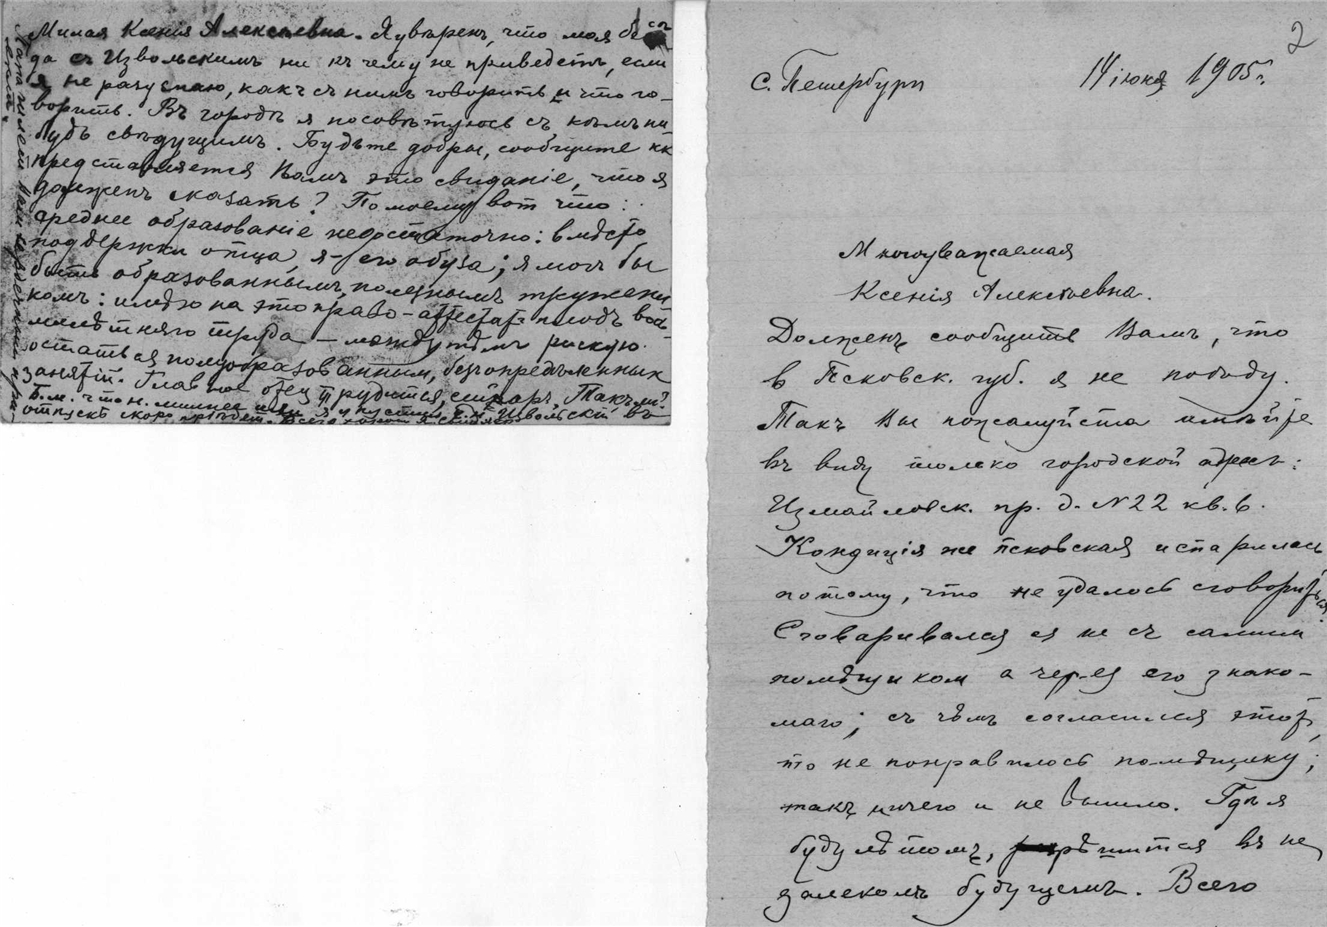 Милая Ксенія Алексѣевна. Я увѣренъ, что моя бесѣ-
да съ Извольскимъ ни къ чему не приведетъ, если
я не разузнаю, какъ съ нимъ говорить и что го-
ворить. Въ городѣ я посовѣтуюсь съ кѣмъ ни
будь свѣдущимъ. Будьте добры, сообщите какъ
представляется Вамъ это свиданіе, что я
долженъ сказать? По моему вот что:
среднее образованіе недостаточно: вмѣсто
поддержки отца, я его обуза; я мог бы
быть образованнымъ, полезнымъ тружени
комъ: имѣю на это право - аттестат плодъ вось-
милѣтняго труда — между тѣмъ рискую
остаться полуобразованным, безъ опредѣленных
занятій. Главное отец трудится, стар. Такъ ли?
Б. м. что н. минист.
отпускъ скоро Извольскій въ
Папа шлет Вам сердечный при-
2
С. Петербургъ 14 іюня 1905 г.
Многоуважаемая
Ксенія Алексѣевна.
Долженъ сообщить Вамъ, что
в Псковск. губ. я не поѣду.
Такъ Вы пожалуйста имѣйте
въ виду только городской адресъ:
Измайловск. пр. д. №22 кв. 6.
Кондиція же псковская испарилась
потому, что не удалось сговориться.
Сговаривался я не съ самим
помѣщиком а через его знако-
маго; съ чѣмъ согласился этот,
то не понравилось помѣщику;
такъ ничего и не вышло. Гдѣ я
буду лѣтомъ, рѣшится въ не
далекомъ будущемъ. Всего